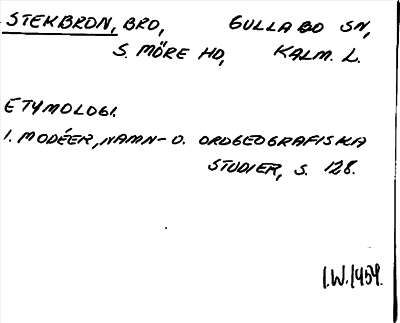 STEKBRON, BRO, GULLABO SN,
S. MÖRE HD, KALM. L.
ETYMOLOGI.
I. MODÉER, NAMN- O. ORDGEOGRAFISKA
STUDIER, S. 128.
I.W. 1959.